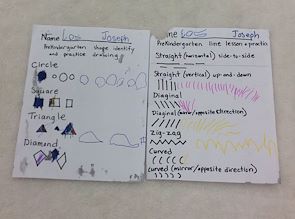 Name Los Joseph
PreKindergarten shape identify
and practice drawing
Circle
Square
Triangle
Diamond
Name Los Joseph
PreKindergarten line lesson + practice
Straight (horizontal) side-to-side
Straight (vertical) up-and-down
Diaginal
Diaginal (mirror/opposite direction)
Zig-zag
Curved
Curved (mirror/opposite direction)